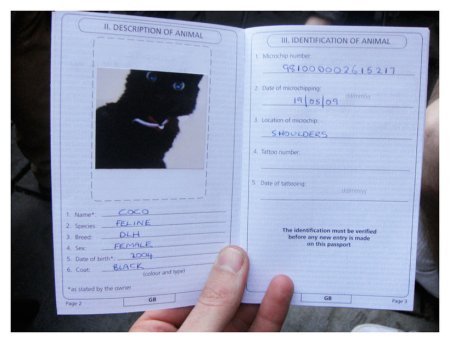 II. DESCRIPTION OF ANIMAL
1. Name*: COCO
2. Species: FELINE
3. Breed: DLH
4. Sex: FEMALE
5. Date of birth*: 2004
6. Coat: BLACK
(colour and type)
*as stated by the owner
Page 2
GB
III. IDENTIFICATION OF ANIMAL
1. Microchip number:
981000002615217
2. Date of microchipping:
19/05/09
dd/mm/yy
3. Location of microchip:
SHOULDERS
4. Tattoo number:
5. Date of tattooing:
dd/mm/yy
The identification must be verified
before any new entry is made
on this passport
GB
Page 3